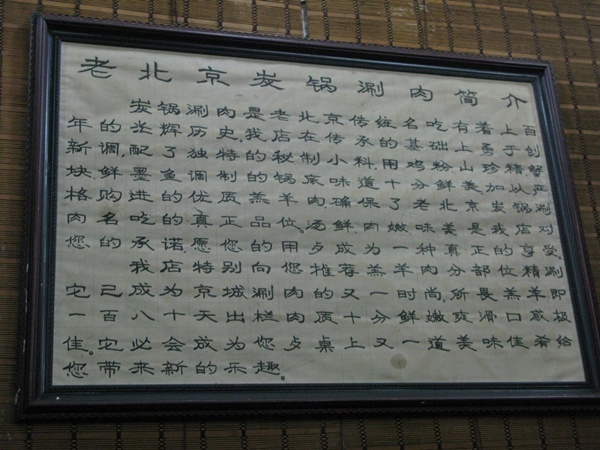 老北京炭锅涮肉简介
炭锅涮肉是老北京传统名吃有着上百
年的光辉历史,我店在传承的基础上勇于创
新调,配了独特的秘制小料.用鸡粉山珍精蟹
块,鲜墨鱼调制的锅底味道十分鲜美加以严
格购进的优质羔羊肉确保了老北京炭锅涮
肉名吃的真正品位.汤鲜肉嫩味美是我店对
您的承诺,愿您的用歺成为一种真正的享受.
我店特别向您推荐羔羊肉分部位精涮
它已成为京城涮肉的又一时尚,所畏羔羊即
一百八十天出栏肉质十分鲜嫩爽滑口感极
佳。它必会成为您歺桌上又一道美味佳肴给
您带来新的乐趣。